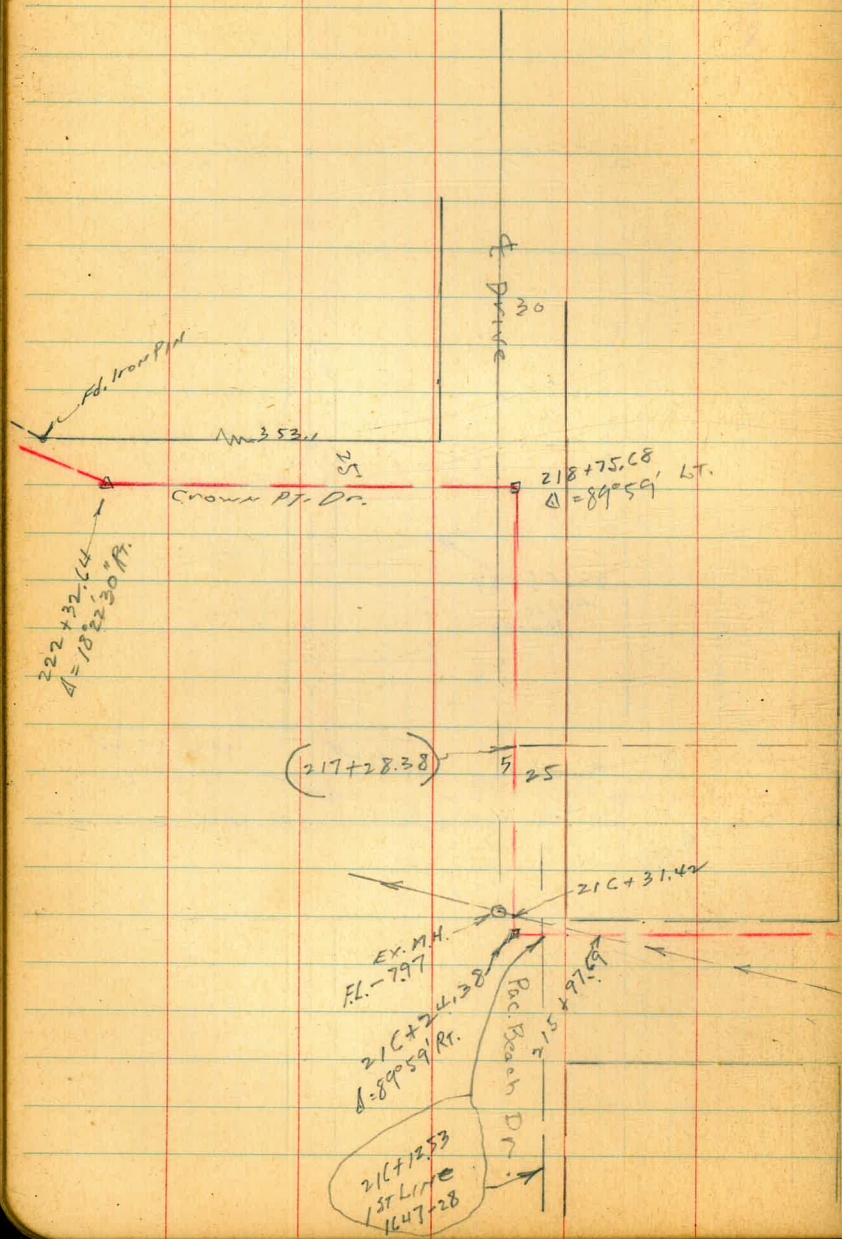 ℄ Drive
30
Fd. Iron Pin
353.1
25
Crown PT. Dr.
218+75.68
Δ = 89°59' LT.
222+32.64
Δ = 18°22'30" Rt.
(217+28.38)
5
25
216+31.42
Ex. M.H.
F.L. - 7.97
216+24.38
Δ = 89°59' Rt.
Pac. Beach Dr.
215+97.69
216+12.53
1ST LINE
1647-28